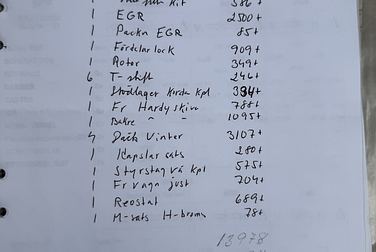 1 kit 386+
1 EGR 2500+
1 Packn EGR 85+
1 Fördelarlock 909+
1 Rotor 349+
6 T-stift 246+
1 Stödlager Korda kpl 334+
1 Fr Hardyskiva 786+
1 Bakre " " 1095+
4 Däck Vinter 3107+
1 Kapslar sats 280+
1 Styrstag vä kpl 575+
1 Fr vagn just 704+
1 Reostat 689+
1 M-sats H-broms 78+
13978